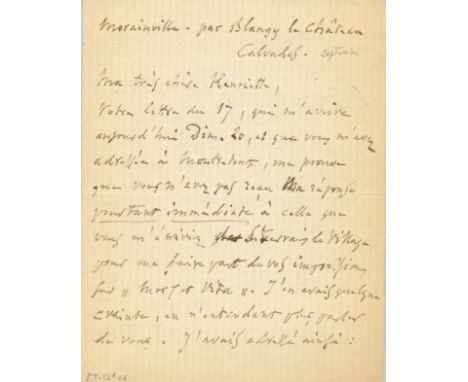 Morainville - par Blangy le Château
Calvados. septembre
Ma très chère Henriette,
Votre lettre du 17, qui m'arrive
aujourd'hui Dim. 20, et que vous m'avez
adressée à Montretout, me prouve
que vous n'avez pas reçu ma réponse
pourtant immédiate à celle que
vous m'écriviez Livernais le Village
pour me faire part de vos impressions
sur " Mors et Vita ". J'en avais quelque
crainte, en n'entendant plus parler
de vous. J'avais adressé ainsi :